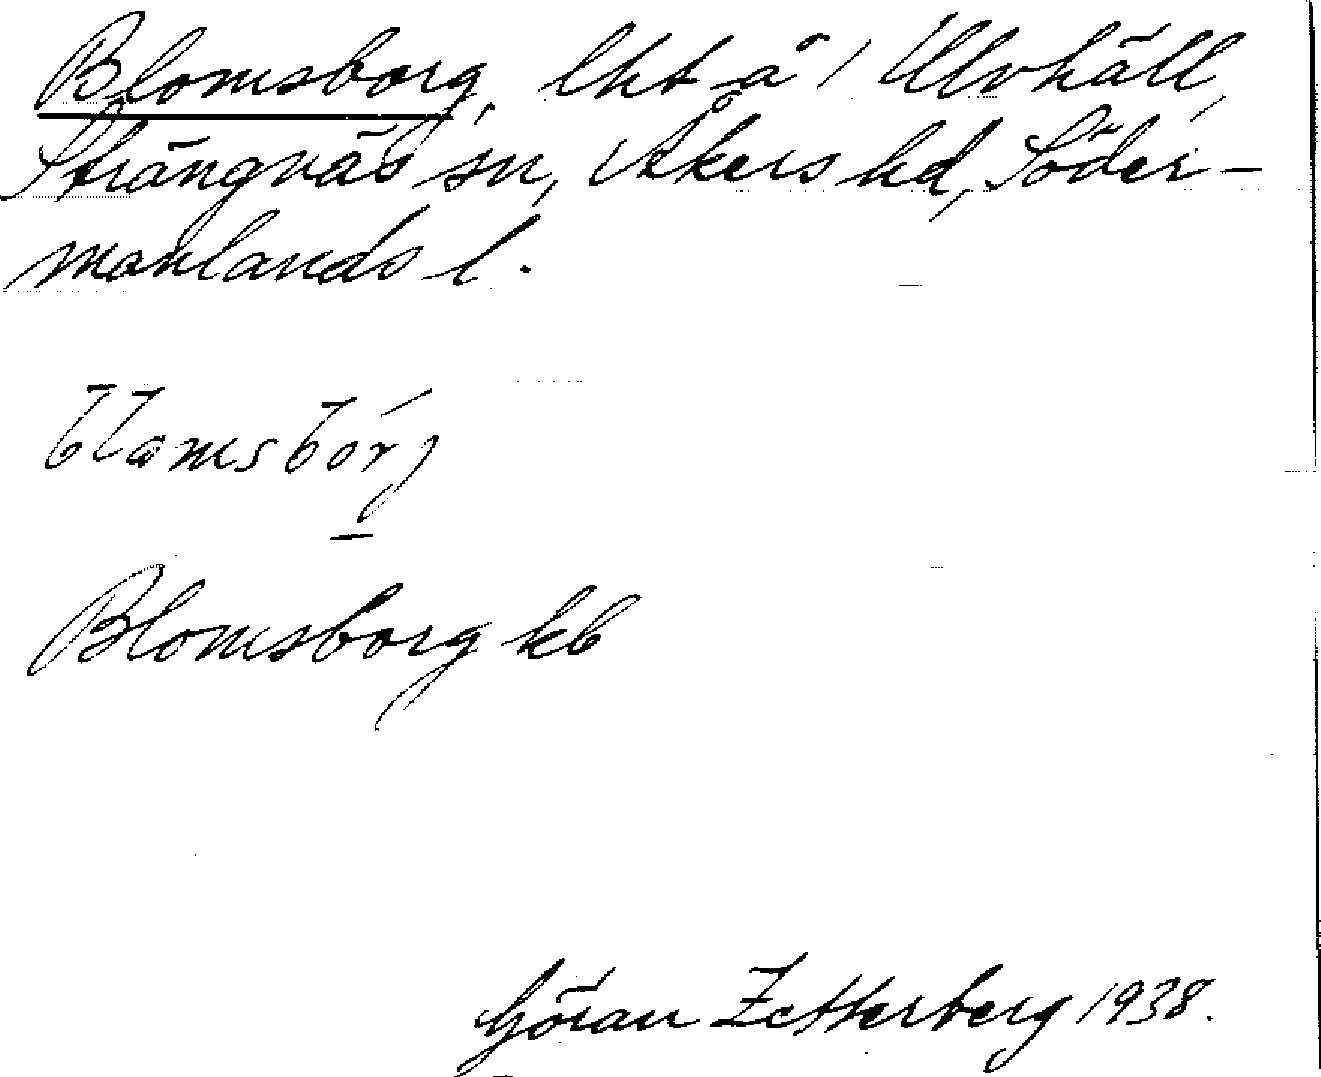 Blomsborg, lht å 1 Ulvhäll,
Strängnäs sn, Åkers hd, Söder-
manlands l.
blomsbórj
Blomsborg kb
Göran Zetterberg 1938.